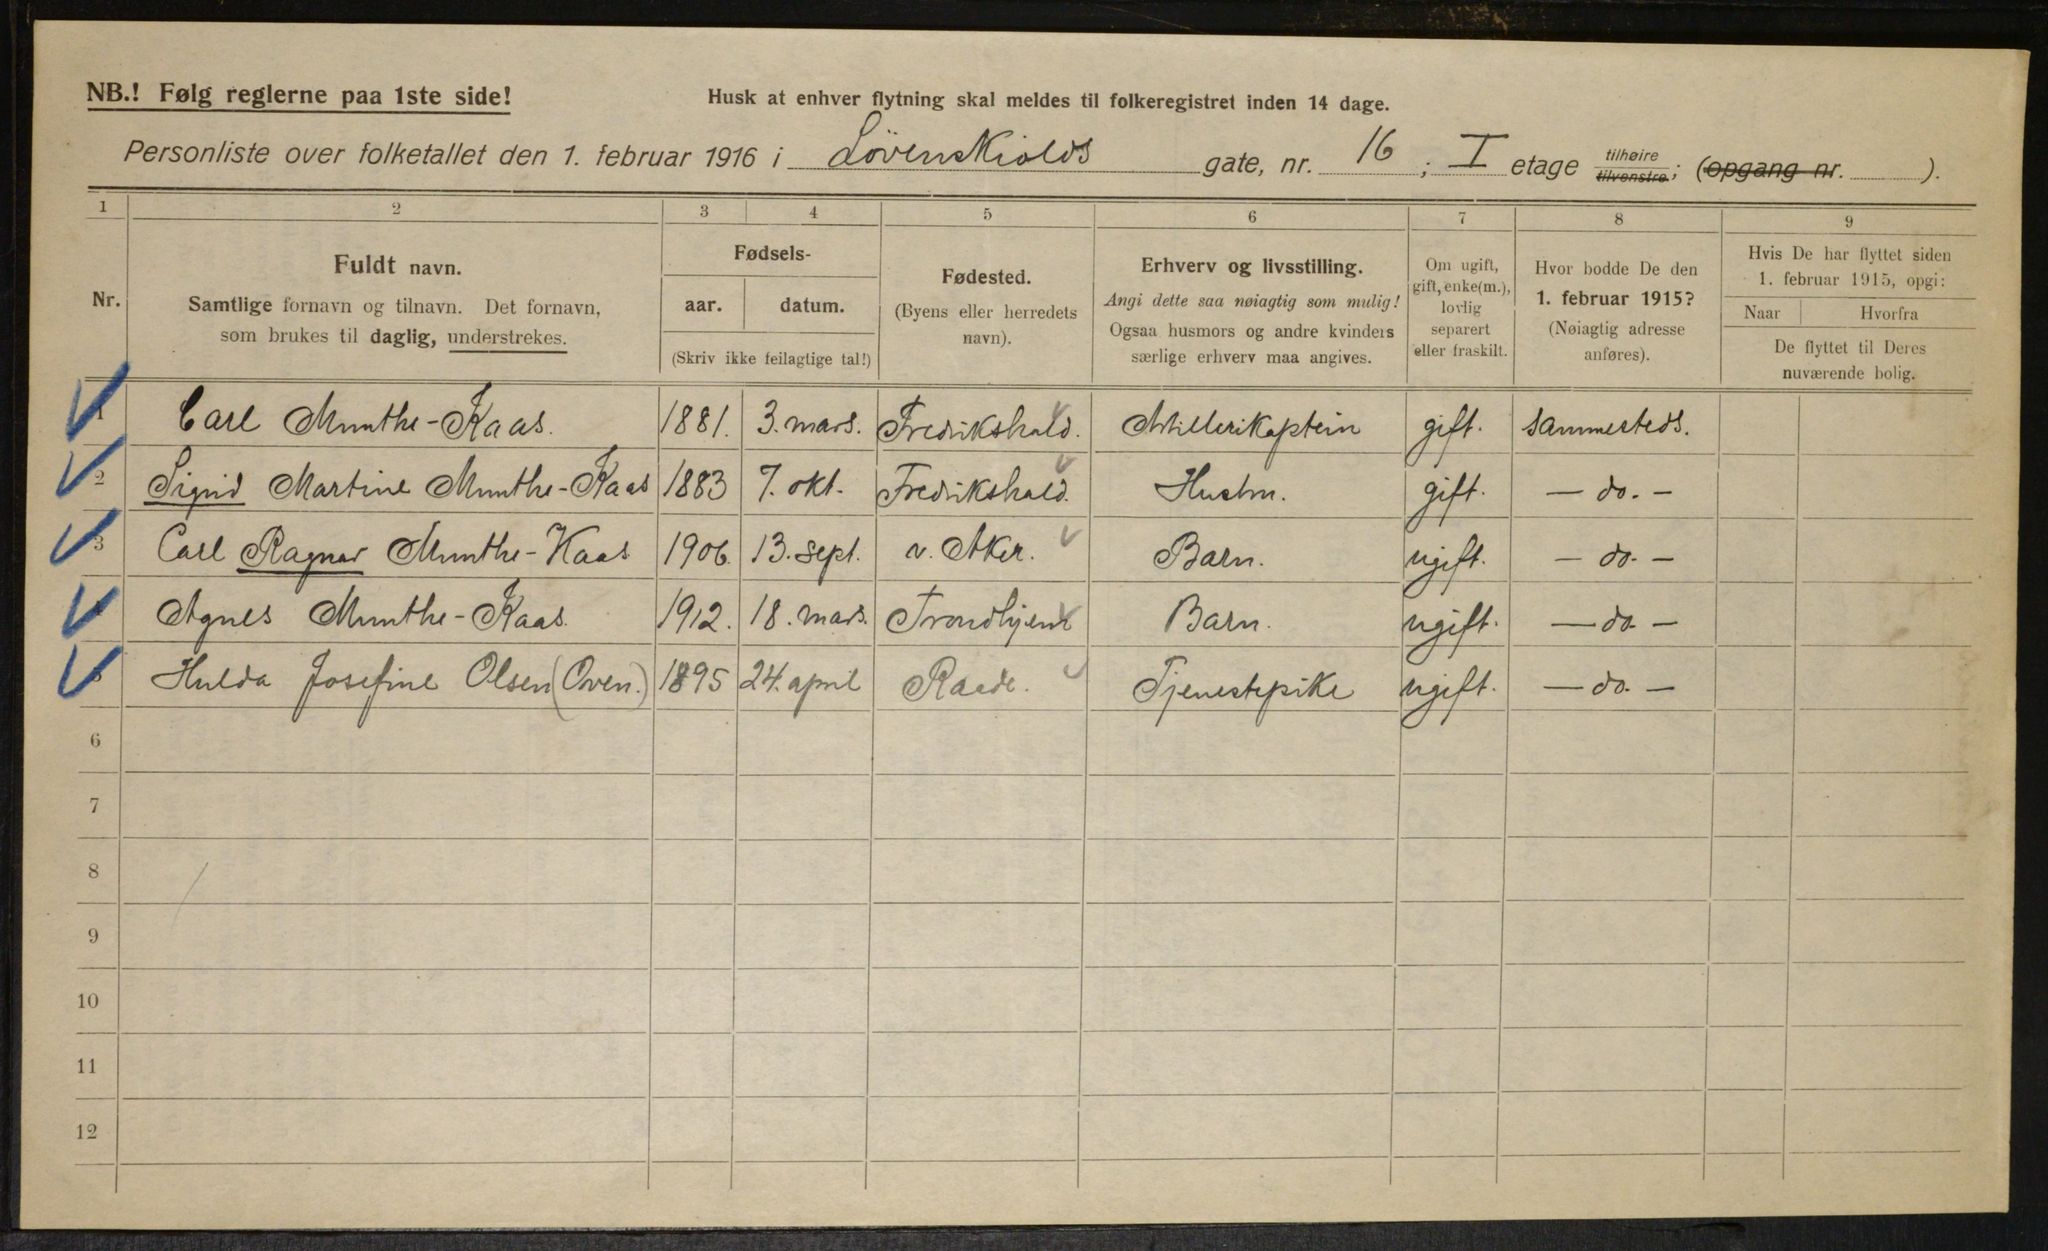 NB.! Følg reglerne paa 1ste side!
Husk at enhver flytning skal meldes til folkeregistret inden 14 dage.
Personliste over folketallet den 1. februar 1916 i Løvenskiolds gate, nr. 16; I etage tilhøire tilvenstre; (opgang nr. ).
1 2 3 4 5 6 7 8 9
Nr.
Fuldt navn.
Samtlige fornavn og tilnavn. Det fornavn,
som brukes til daglig, understrekes.
Fødsels-
aar. datum.
(Skriv ikke feilagtige tal!)
Fødested.
(Byens eller herredets
navn).
Erhverv og livsstilling.
Angi dette saa nøiagtig som mulig!
Ogsaa husmors og andre kvinders
særlige erhverv maa angives.
Om ugift,
gift, enke(m.),
lovlig
separert
eller fraskilt.
Hvor bodde De den
1. februar 1915?
(Nøiagtig adresse
anføres).
Hvis De har flyttet siden
1. februar 1915, opgi:
Naar Hvorfra
De flyttet til Deres
nuværende bolig.
1 Carl Munthe-Kaas. 1881. 3. mars. Fredrikshald. Artillerikaptein gift. sammesteds.
2 Sigrid Martine Munthe-Kaas 1883 7. okt. Fredrikshald. Hustru. gift. — do. —
3 Carl Ragnar Munthe-Kaas 1906. 13. sept. v. Aker. Barn. ugift. — do. —
4 Agnes Munthe-Kaas. 1912. 18. mars. Trondhjem Barn. ugift. — do. —
5 Hulda Josefine Olsen (Oven.) 1895 24. april Raade. Tjenestepike ugift. — do. —
6
7
8
9
10
11
12